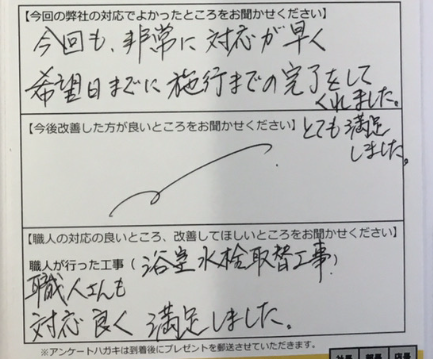 【今回の弊社の対応でよかったところをお聞かせください】
今回も、非常に対応が早く
希望日までに施行までの完了をして
くれました。
とても満足
しました。
【今後改善した方が良いところをお聞かせください】
【職人の対応の良いところ、改善してほしいところをお聞かせください】
職人が行った工事(浴室水栓取替工事)
職人さんも
対応良く満足しました。
※アンケートハガキは到着後にプレゼントを郵送させていただきます。
社長 部長 店長